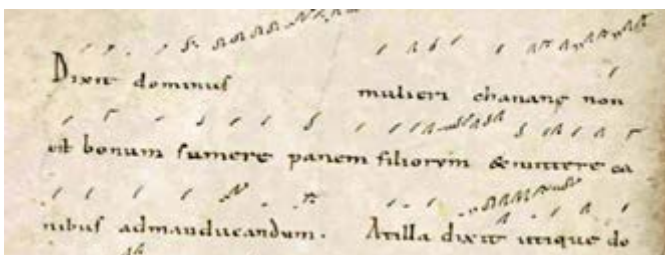 Dixit dominus mulieri chananę non
est bonum sumere panem filiorum & mittere ca
nibus admanducandum. Atilla dixit utique do